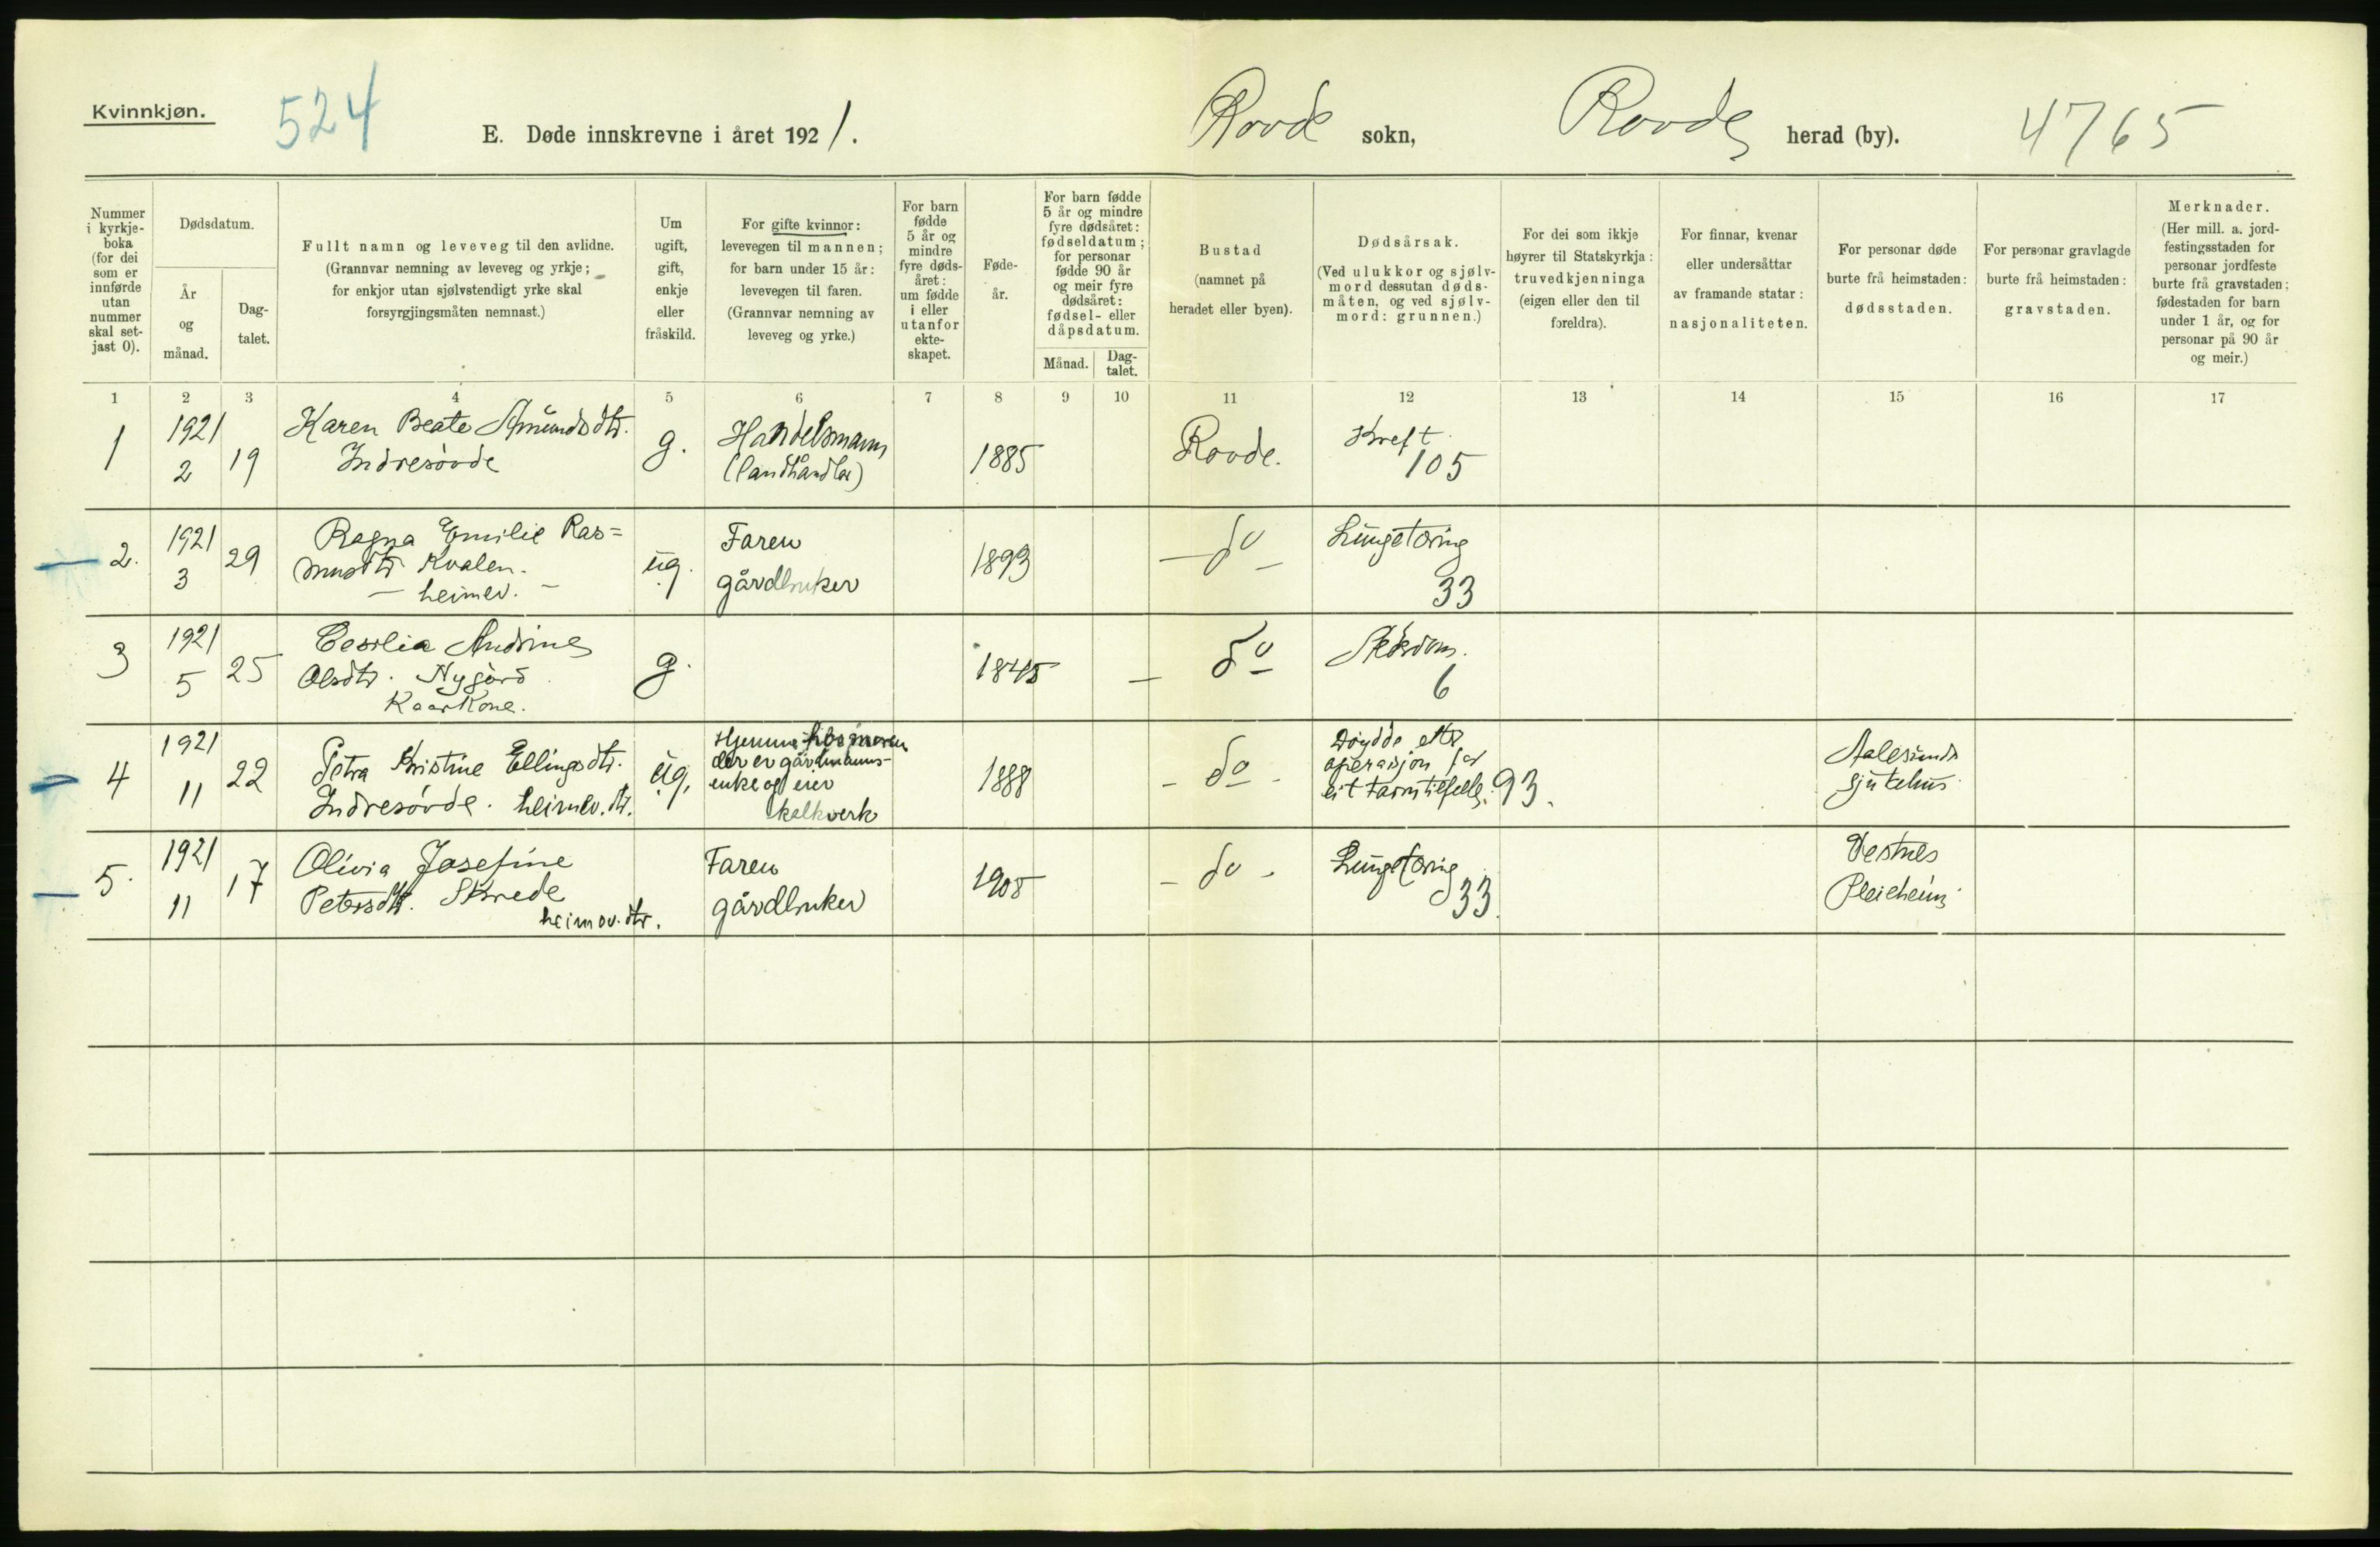 Kvinnkjøn.
524
E. Døde innskrevne i året 1921.
Rovde sokn,
Rovde herad (by).
4765
Nummer i kyrkje-boka (for dei som er innførde utan nummer skal set-jast 0).
Dødsdatum.
År og månad.
Dag-talet.
Fullt namn og leveveg til den avlidne.
(Grannvar nemning av leveveg og yrkje;
for enkjor utan sjølvstendigt yrke skal
forsyrgjingsmåten nemnast.)
Um ugift, gift, enkje eller fråskild.
For gifte kvinnor:
levevegen til mannen;
for barn under 15 år:
levevegen til faren.
(Grannvar nemning av
leveveg og yrke.)
For barn fødde 5 år og mindre fyre døds-året: um fødde i eller utanfor ekte-skapet.
Føde-år.
For barn fødde 5 år og mindre fyre dødsåret: fødseldatum; for personar fødde 90 år og meir fyre dødsåret: fødsel- eller dåpsdatum.
Månad.
Dag-talet.
Bustad
(namnet på
heradet eller byen).
Dødsårsak.
(Ved ulukkor og sjølv-
mord dessutan døds-
måten, og ved sjølv-
mord: grunnen.)
For dei som ikkje
høyrer til Statskyrkja:
truvedkjenninga
(eigen eller den til
foreldra).
For finnar, kvenar
eller undersåttar
av framande statar:
nasjonaliteten.
For personar døde
burte frå heimstaden:
dødsstaden.
For personar gravlagde
burte frå heimstaden:
gravstaden.
Merknader.
(Her mill. a. jord-
festingsstaden for
personar jordfeste
burte frå gravstaden;
fødestaden for barn
under 1 år, og for
personar på 90 år
og meir.)
1 2 3 4 5 6 7 8 9 10 11 12 13 14 15 16 17
1 1921 2 19 Karen Beate Amundsdtr. Indresøvde g. Handelsmann (landhandlar) 1885 Rovde. Kreft 105
2. 1921 3 29 Ragna Emilie Ras=musdtr Kvalen. — heimev. — ug. Faren gårdbruker 1893 — do — Lungetæring 33
3 1921 5 25 Cesilia Andrine Olsdtr. Nygård Kaarkone. g. 1845 — do — 6
4 1921 11 22 Petra Kristine Ellingsdtr. Indresøvde. heimev. dtr. ug. Hjemme hos moren der er gårdmanns-enke og eier kalkverk 1888 - do - Døydde etter operasjon for eit tarmtilfelle. 93. Aalesunds sjukehus
5. 1921 11 17 Olivia Josefine Petersdtr. Skrede heimev. dtr. Faren gårdbruker 1905 - do - Lungetæring 33 Vestnes Pleieheim